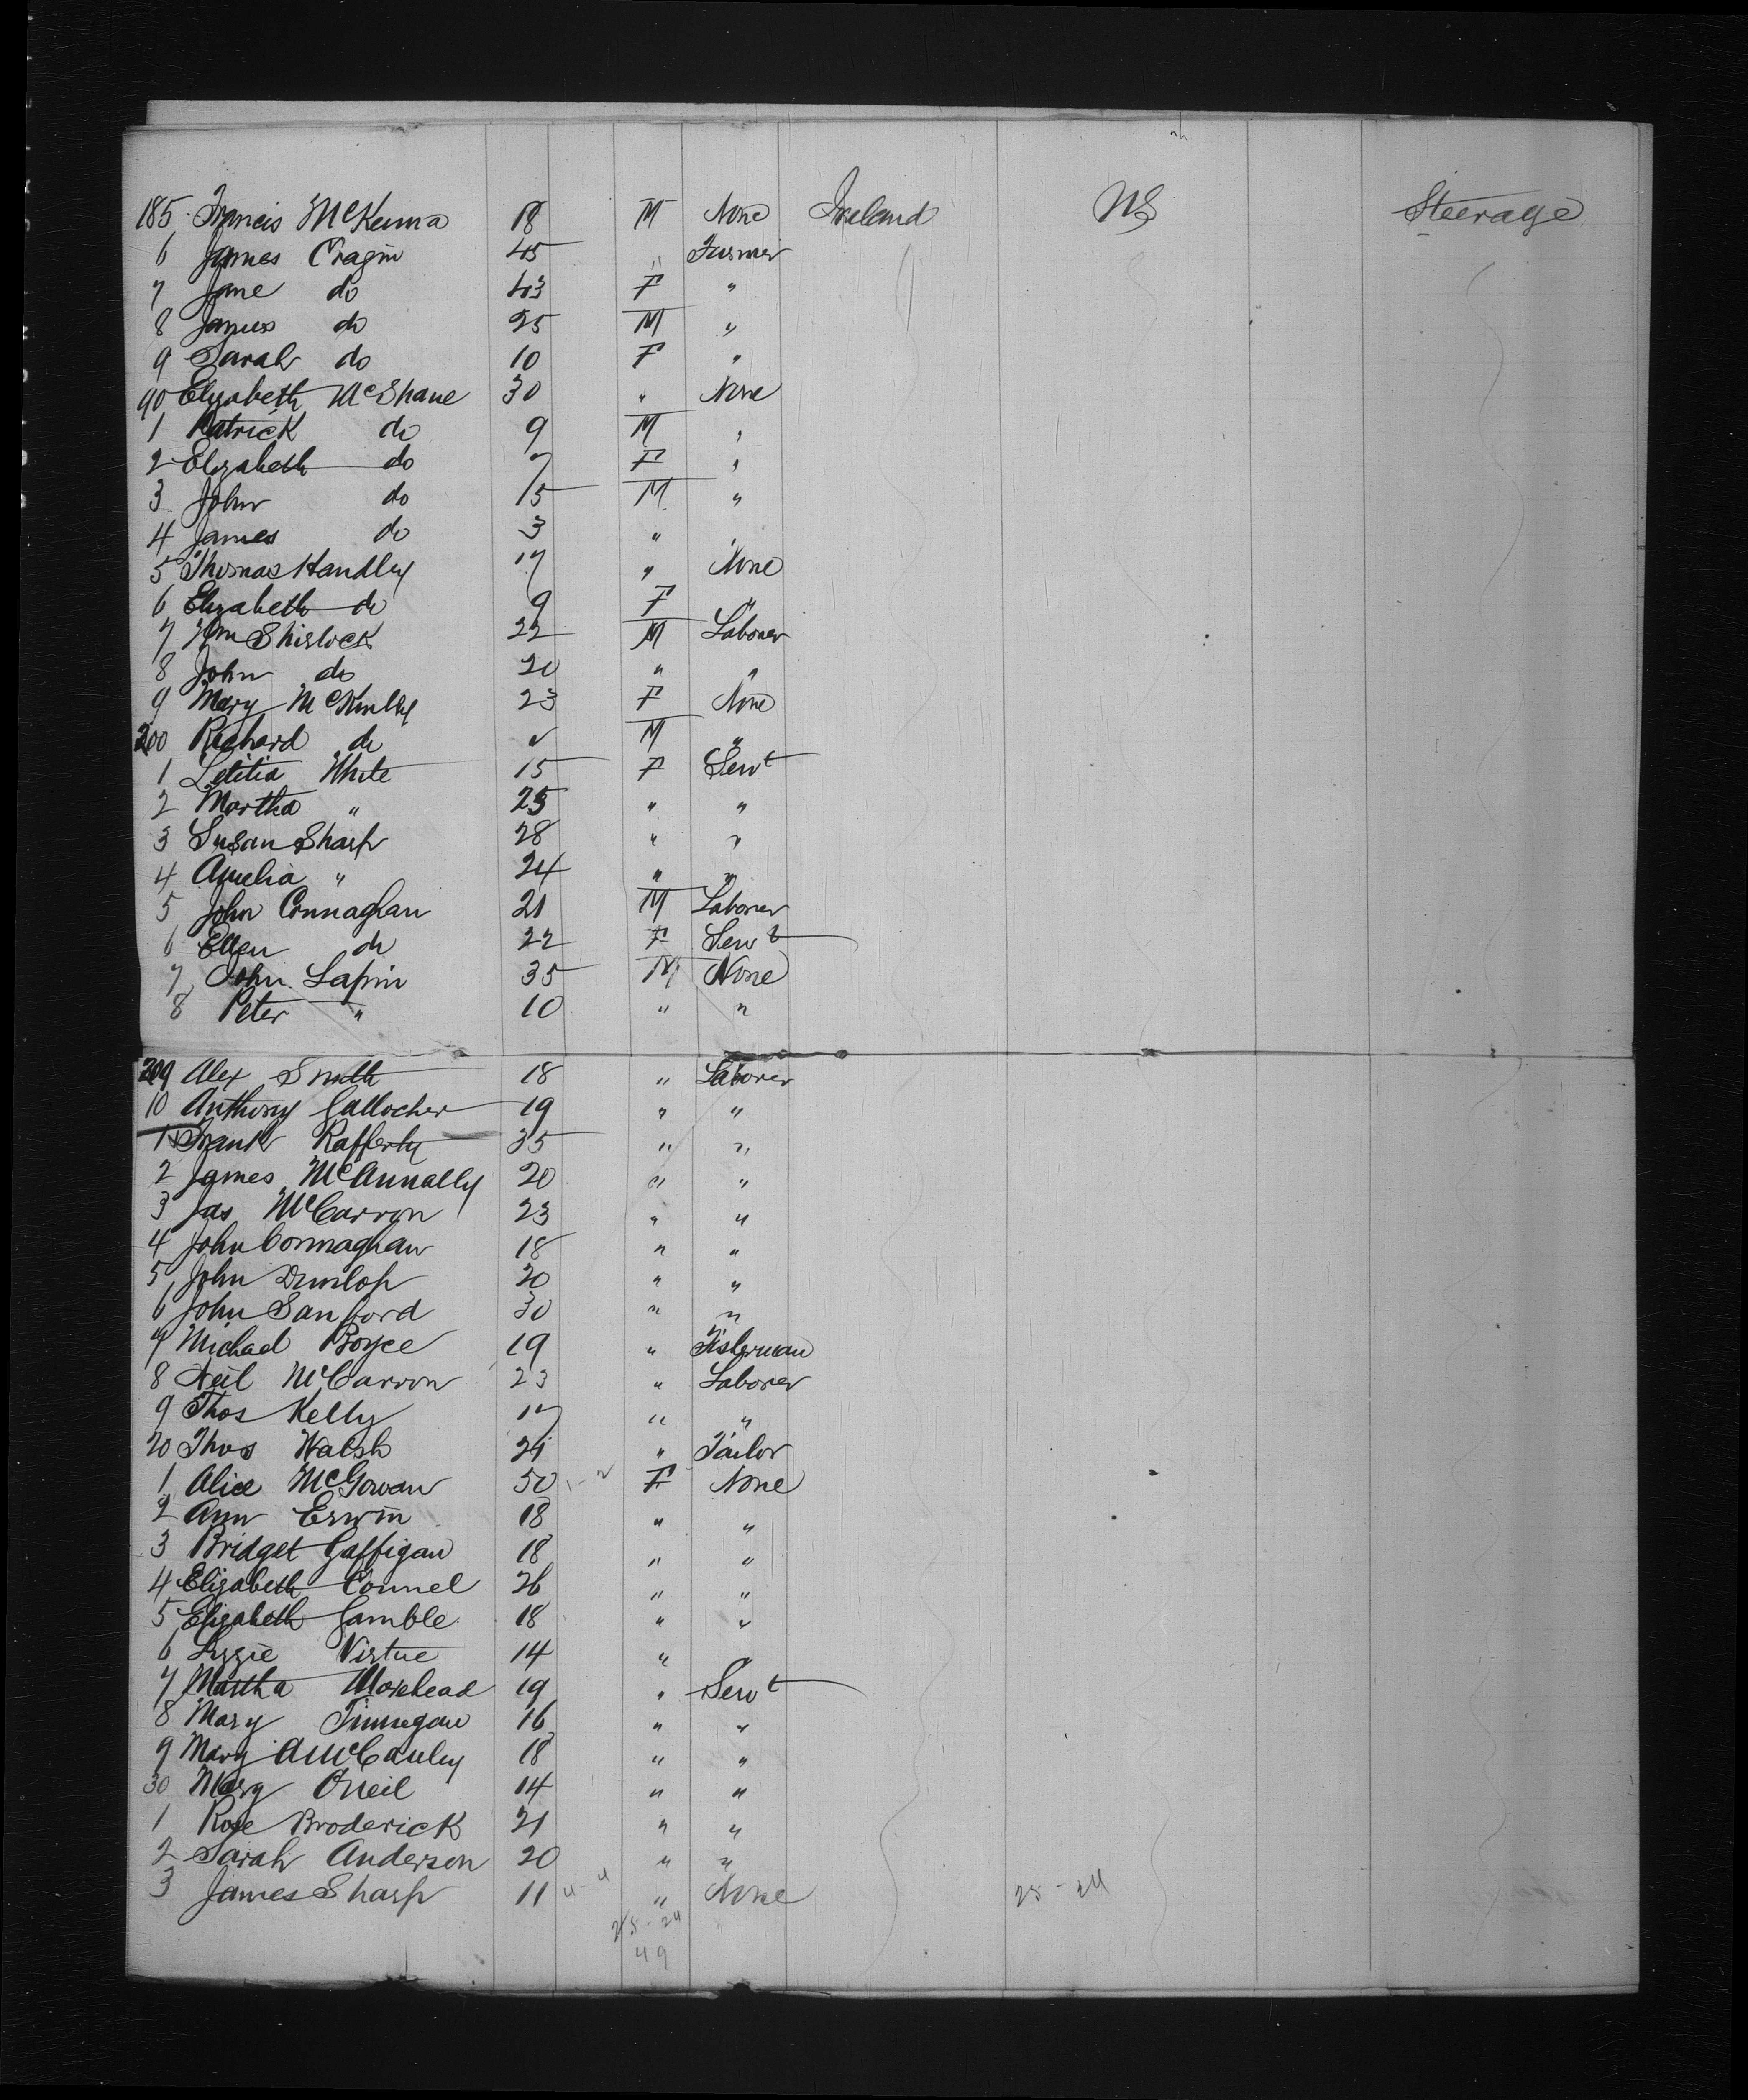 185 Francis McKenna 18 M None Ireland US Steerage
6 James Cragin 45 " Farmer
7 Jane do 43 F "
8 James do 25 M "
9 Sarah do 10 F "
90 Elizabeth McShane 30 " None
1 Patrick do 9 M "
2 Elizabeth do 7 F "
3 John do 15 M "
4 James do 3 "
5 Thomas Handley 17 " None
6 Elizabeth do 9 F "
7 Wm Shirlock 22 M Laborer
8 John do 20 " "
9 Mary 23 F None
200 Richard do M "
1 Letitia White 15 F Servt
2 Martha " 25 " "
3 Susan Sharp 28 " "
4 Amelia " 24 " "
5 John Connaghan 21 M Laborer
6 Ellen do 22 F Servt
7 John Lapin 35 M None
8 Peter " 10 " "
209 Alex Smith 18 " Laborer
10 Anthony Gallocher 19 " "
1 Frank Rafferty 35 " "
2 James McAnnally 20 " "
3 Jas McCarron 23 " "
4 John Connaghan 18 " "
5 John Dunlop 20 " "
6 John Sanford 30 " "
7 Michael Boyce 19 " Fisherman
8 Neil McCarron 23 " Laborer
9 Thos Kelly 17 " "
20 Thos Walsh 21 " Tailor
1 Alice McGowan 50 F None
2 Ann Erwin 18 " "
3 Bridget Gaffigan 18 " "
4 Elizabeth Connel 26 " "
5 Elizabeth Gamble 18 " "
6 Lizzie Virtue 14 "
7 Martha Morehead 19 " Servt
8 Mary Finnegan 16 " "
9 Mary A McCauley 18 " "
30 Mary Oneil 14 " "
1 Rose Broderick 21 " "
2 Sarah Anderson 20 " "
3 James Sharp 11 4-4 " None 25-24
25-24
49